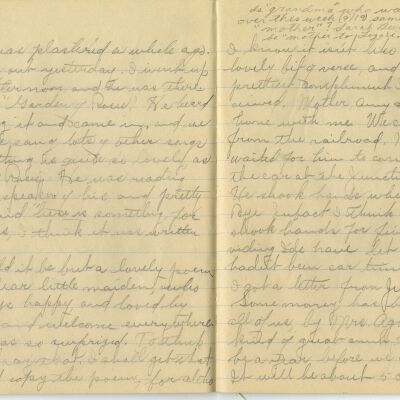 was plastered a whole ago.
out yesterday. I went up
ternoon and he was there
Garden Rose". He heard
g it and came in, and we
sang lots of other songs
thing is quite so lovely as
voice. He was reading
speaker of his and pretty
aid "here is something for
s, I think it was written
ld it be but a lovely poem
ear little maiden, who
ys happy, and loved by
and welcome everywhere
was so surprised. To think
say that. I shall get what
d copy the poem, for altho
is "grandma" who was
over this week (9/19 same
"mother"? Sarah
is "mother" to
I know it isn't like
lovely bit of verse, and
prettiest compliment I
ceived. Mother Amy a
home with me. We c
from the railroad.
waited for him to con
the car at the Junctio
He shook hands when
bye. In fact I think
shook hands for fiv
viding I'd have let
hadn't been car tim
I got a letter from Ju
Some money has been
all of us, by Mrs.
kind of great aunt
be a year, before we
It will be about 50